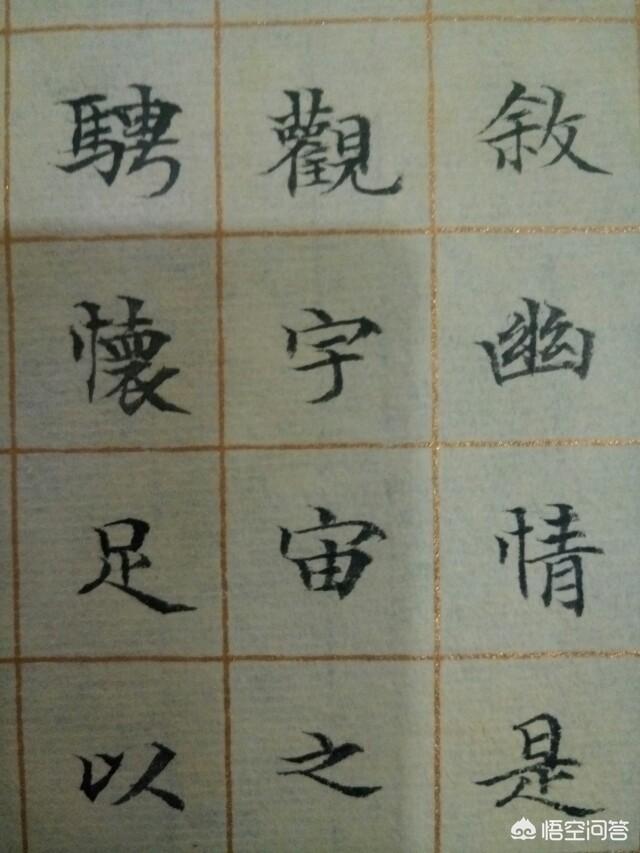 敘幽情是
觀宇宙之
騁懷足以
悟空问答